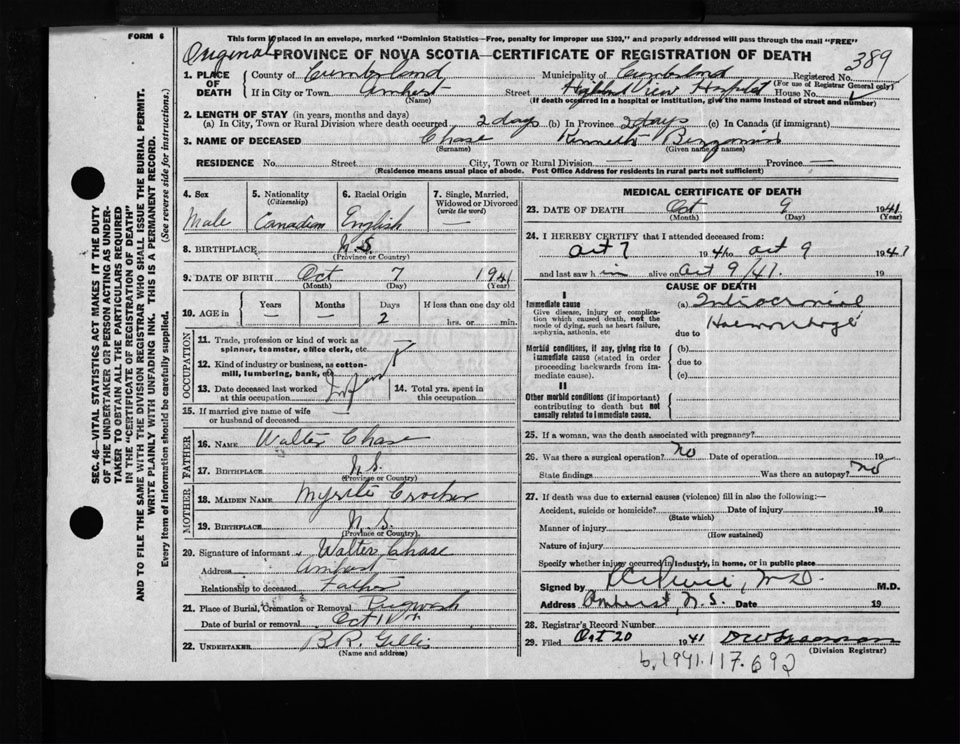 FORM 6
This form if placed in an envelope, marked "Dominion Statistics—Free, penalty for improper use $300," and properly addressed will pass through the mail "FREE"
Original
PROVINCE OF NOVA SCOTIA—CERTIFICATE OF REGISTRATION OF DEATH
389
1. PLACE OF DEATH
County of Cumberland Municipality of Cumberland Registered No.
(For use of Registrar General only)
If in City or Town Amherst Street Highland View Hospital House No.
(Name) (If death occurred in a hospital or institution, give the name instead of street and number)
2. LENGTH OF STAY (in years, months and days)
(a) In City, Town or Rural Division where death occurred 2 days (b) In Province 2 days (c) In Canada (if immigrant)
3. NAME OF DECEASED Chase Kenneth Benjamin
(Surname) (Given name or names)
RESIDENCE No. Street City, Town or Rural Division — Province —
(Residence means usual place of abode. Post Office Address for residents in rural parts not sufficient)
4. Sex
Male
5. Nationality
(Citizenship)
Canadian
6. Racial Origin
English
7. Single, Married, Widowed or Divorced
(write the word)
—
8. BIRTHPLACE N.S.
(Province or Country)
9. DATE OF BIRTH Oct 7 1941
(Month) (Day) (Year)
10. AGE in
Years Months Days If less than one day old
— — 2 hrs. or min.
OCCUPATION
11. Trade, profession or kind of work as spinner, teamster, office clerk, etc
12. Kind of industry or business, as cotton-mill, lumbering, bank, etc.
Infant
13. Date deceased last worked at this occupation
14. Total yrs. spent in this occupation
15. If married give name of wife or husband of deceased
FATHER
16. NAME Walter Chase
17. BIRTHPLACE N.S.
(Province or Country)
MOTHER
18. MAIDEN NAME Myrtle Crocker
19. BIRTHPLACE N.S.
(Province or Country)
20. Signature of informant Walter Chase
Address Amherst
Relationship to deceased Father
21. Place of Burial, Cremation or Removal Pugwash
Date of burial or removal Oct
22. UNDERTAKER B.R. Gillis
(Name and address)
MEDICAL CERTIFICATE OF DEATH
23. DATE OF DEATH Oct 9 1941
(Month) (Day) (Year)
24. I HEREBY CERTIFY that I attended deceased from:
Oct 7 1941 to Oct 9 1941
and last saw him alive on Oct 9/41. 19
CAUSE OF DEATH
I
Immediate cause (a) Intracranial
Give disease, injury or complication which caused death, not the mode of dying, such as heart failure, asphyxia, asthenia, etc
due to Haemorrhage
Morbid conditions, if any, giving rise to immediate cause (stated in order proceeding backwards from immediate cause).
(b)
due to
(c)
II
Other morbid conditions (if important) contributing to death but not causally related to immediate cause.
25. If a woman, was the death associated with pregnancy?
26. Was there a surgical operation? no Date of operation 19
State findings Was there an autopsy? no
27. If death was due to external causes (violence) fill in also the following:—
Accident, suicide or homicide? Date of injury 19
(State which)
Manner of injury
(How sustained)
Nature of injury
Specify whether injury occurred in industry, in home, or in public place
Signed by M.D. M.D.
Address Amherst, N.S. Date 19
28. Registrar's Record Number
29. Filed Oct 20 1941
(Division Registrar)
b. 1941.117.692
SEC. 46—VITAL STATISTICS ACT MAKES IT THE DUTY
OF THE UNDERTAKER OR PERSON ACTING AS UNDER-
TAKER TO OBTAIN ALL THE PARTICULARS REQUIRED
IN THE "CERTIFICATE OF REGISTRATION OF DEATH"
AND TO FILE THE SAME WITH THE DIVISION REGISTRAR WHO SHALL ISSUE THE BURIAL PERMIT.
WRITE PLAINLY WITH UNFADING INK. THIS IS A PERMANENT RECORD.
Every item of information should be carefully supplied. (See reverse side for instructions.)